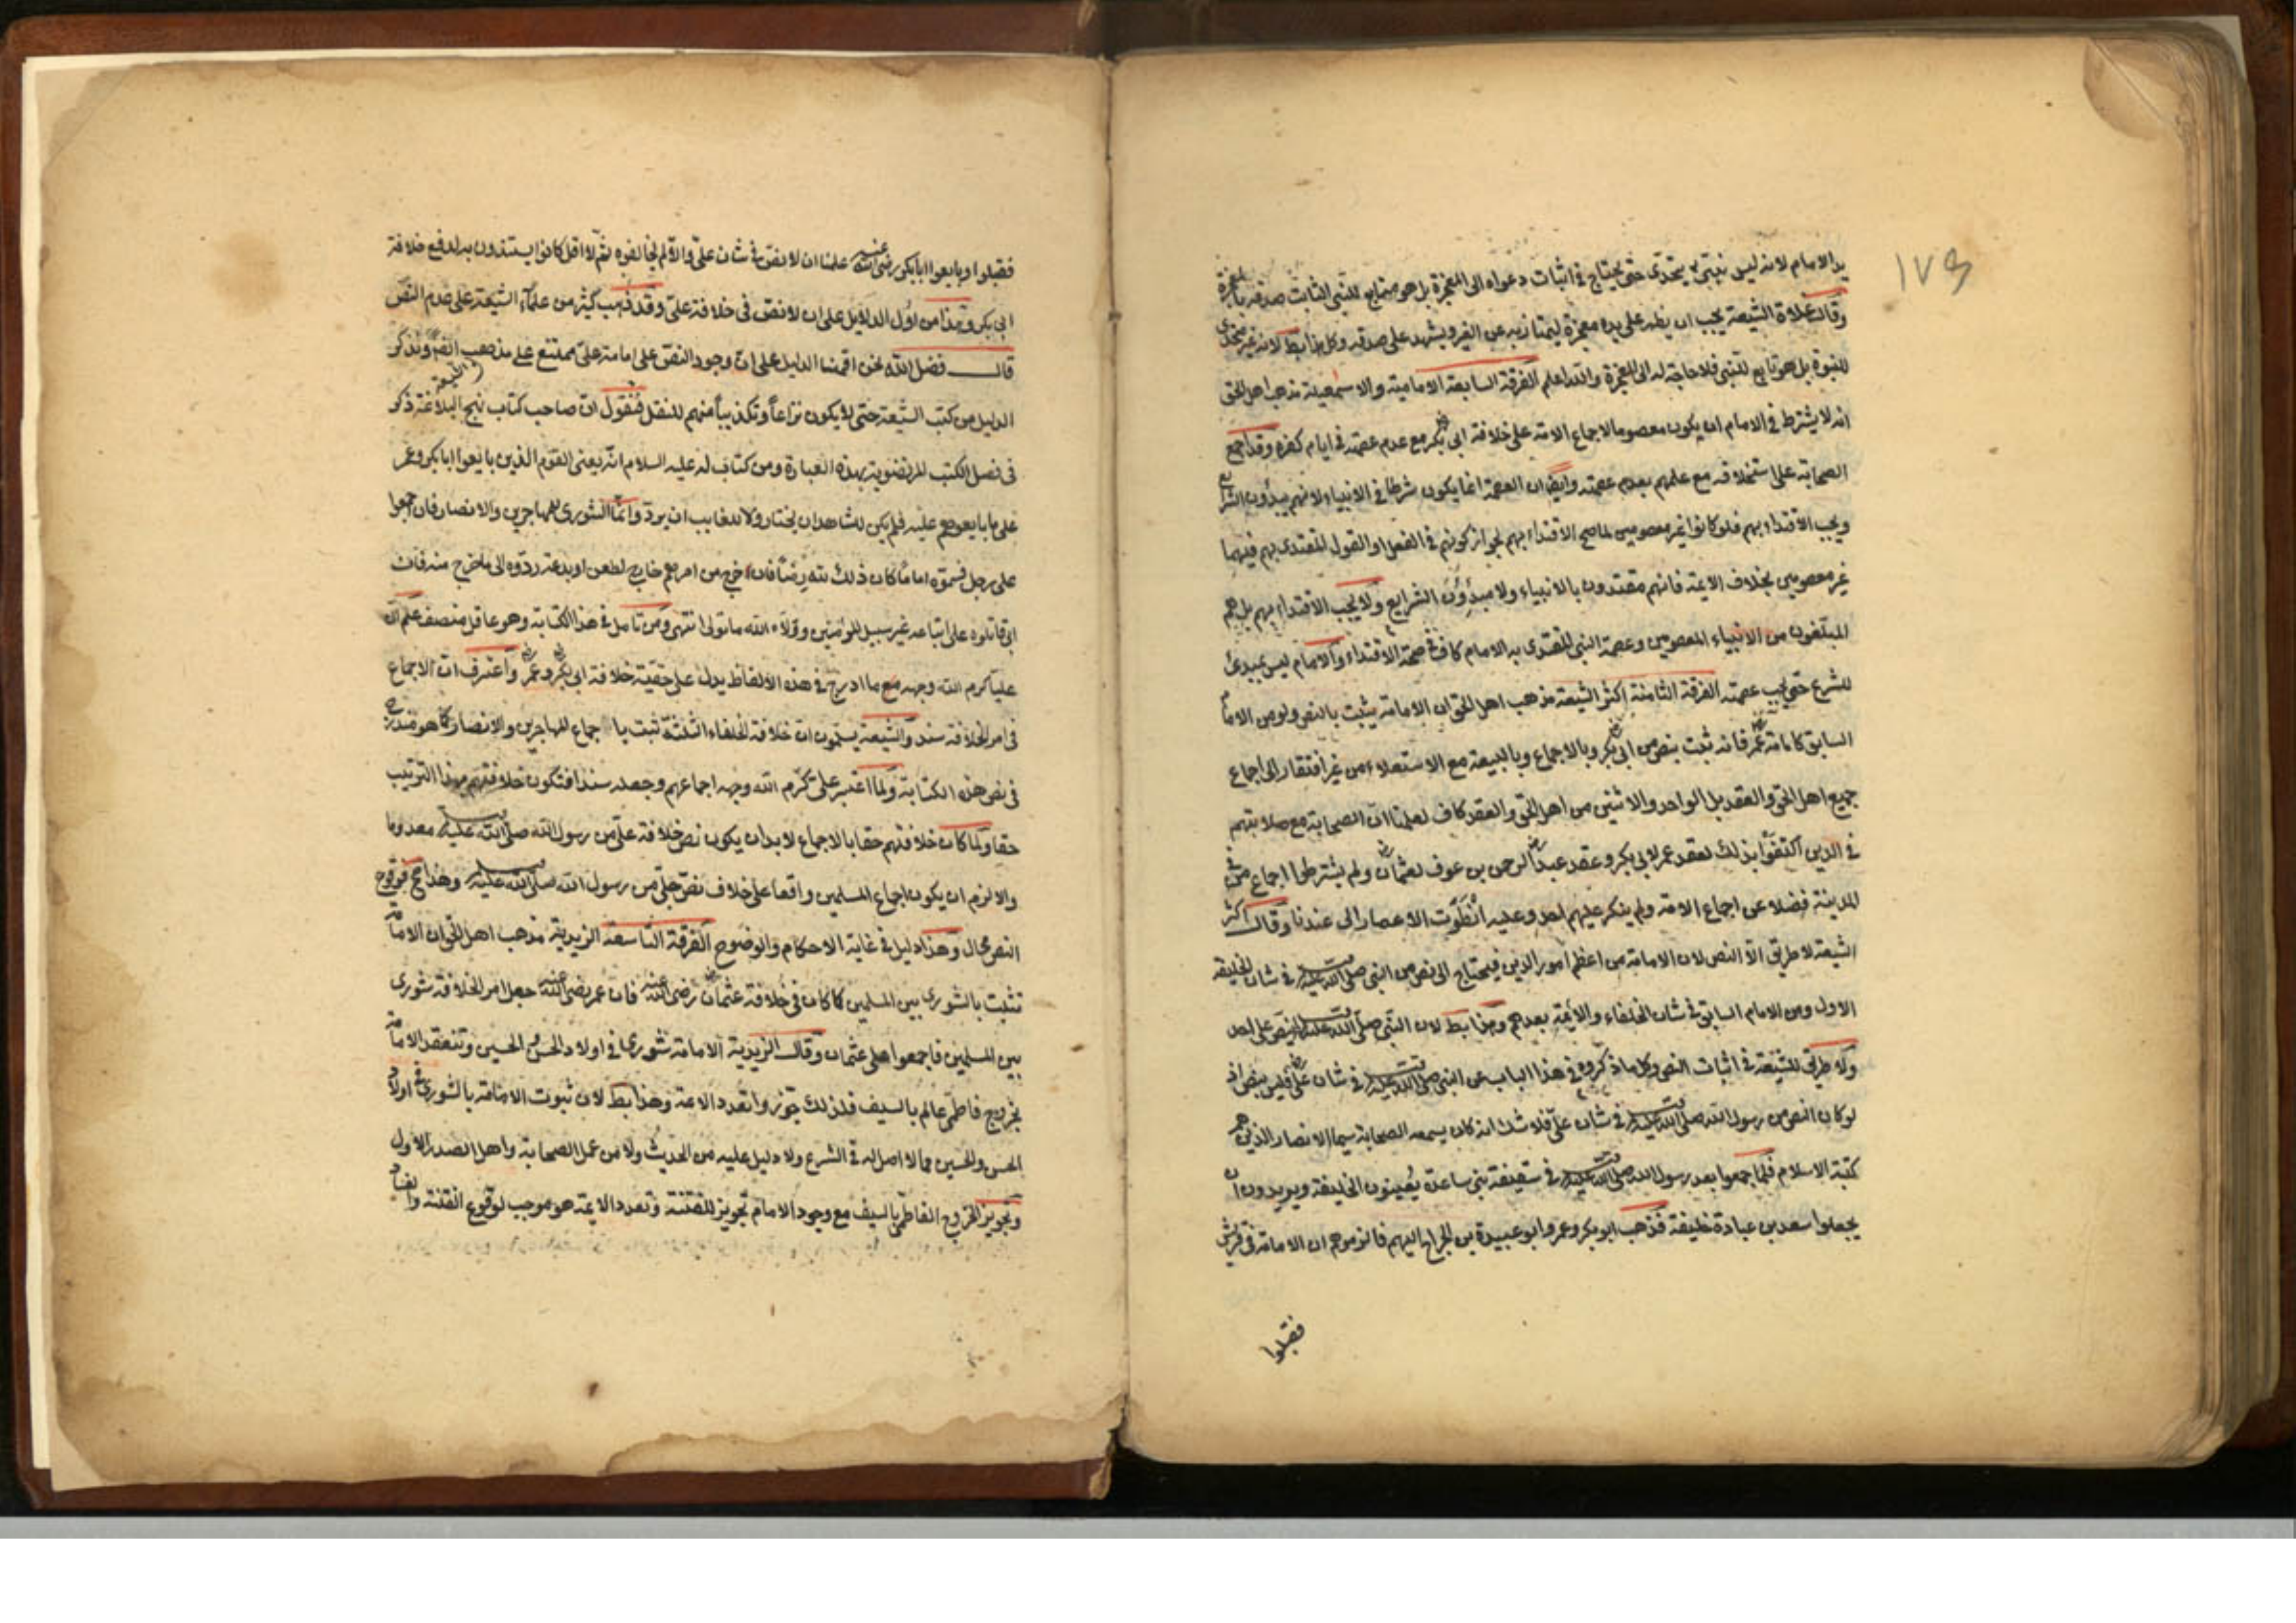 ١٧٤
يد الامام لانه ليس بنبي يتحدى حتى يحتاج في اثبات دعواه الى المعجزة بل هو متابع للنبي الثابت صدقه بالمعجزة
وقالت غلاة الشيعة يجب ان يظهر على يده معجزة ليمتاز به عن الغير ويشهد على صدقه وكل هذا بط لانه غير متحدى
للنبوة بل هو تابع للنبي فلا حاجة له الى المعجزة والله اعلم الفرقة السابعة الامامية والاسمعيلية مذهب اهل الحق
انه لا يشترط في الامام ان يكون معصوما لاجماع الامة على خلافة ابي بكر رض مع عدم عصمته في ايام كفره وقد اجمع
الصحابة على استخلافه مع علمهم بعدم عصمته وايضا ان العصمة انما يكون شرطا في الانبياء لانهم يبدؤن الشرايع
ويجب الاقتداء بهم فلو كانوا غير معصومين لما صح الاقتداء بهم لجواز كونهم في الفعل او القول المقتدى بهم فيهما
غير معصومين بخلاف الايمة فانهم مقتدون بالانبياء ولا مبدؤن الشرايع ولا يجب الاقتداء بهم بل هم
المبلغون من الانبياء المعصومين وعصمة النبي المقتدى به الامام كاف في صحة الاقتداء والامام ليس بمبدئ
للشرع حتى يجب عصمته الفرقة الثامنة اكثر الشيعة مذهب اهل الحق ان الامامة يثبت بالنص ولو من الامام
السابق كامامة عمر رض فانه ثبت بنص من ابي بكر رض وبالاجماع وبالبيعة مع الاستعلاء من غير افتقار الى اجماع
جميع اهل الحق والعقد بل الواحد والاثنين من اهل الحق والعقد كاف لعلمنا ان الصحابة مع صلابتهم
في الدين اكتفوا بذلك لعقد عمر لابي بكر وعقد عبد الرحمن بن عوف لعثمان رض ولم يشترطوا اجماع من في
المدينة فضلا عن اجماع الامة ولم ينكر عليهم احد وعليه انطوت الاعصار الى عندنا وقالت اكثر
الشيعة لا طريق الا النص لان الامامة من اعظم امور الدين فيحتاج الى نص من النبي صلى الله عليه في شان الخليفة
الاول ومن الامام السابق في شان الخلفاء والايمة بعدهم وهذا بط لان النبي صلى الله عليه لم ينص على احد
ولا طريق للشيعة في اثبات النص وكل ما ذكروه في هذا الباب عن النبي صلى الله عليه في شان علي رض فليس بنص اذ
لو كان النص من رسول الله صلى الله عليه في شان علي فلا شك انه كان يسمعه الصحابة سيما الانصار الذين هم
كتبة الاسلام فلما اجمعوا بعد رسول الله صلى الله عليه في سقيفة بني ساعدة يعينون الخليفة ويريدون ان
يجعلوا سعد بن عبادة خليفة فذهب ابو بكر وعمر وابو عبيدة بن الجراح اليهم فالزموهم ان الامامة في قريش
فقبلوا
فقبلوا وبايعوا ابا بكر رضي الله عنه علمنا ان لا نص في شان علي والا لم يخالفوه ثم لا اقل كانوا يستندون به لدفع خلافة
ابي بكر وهذا من اول الدلايل على ان لا نص في خلافة علي وقد ذهب كثير من علماء الشيعة على عدم النص
قال فضل الله نحن اقمنا الدليل على ان وجود النص على امامة علي ممتنع على مذهب الشيعة ونذكر
الدليل من كتب الشيعة حتى لا يكون نزاعا وتكذيبا منهم للنقل فنقول ان صاحب كتاب نهج البلاغة ذكر
في فصل الكتب المرتضوية بهذه العبارة ومن كتاب له عليه السلام انه بعني القوم الذين بايعوا ابا بكر وعمر
على ما بايعوهم عليه فلم يكن للشاهد ان يختار ولا للغايب ان يرد وانما الشورى للمهاجرين والانصار فان اجمعوا
على رجل فسموه اماما كان ذلك لله رضا فان خرج من امرهم خارج لطعن او بدعة ردوه الى ما خرج منه فان
ابى قاتلوه على اتباعه غير سبيل المؤمنين وولاه الله ما تولى انتهى ومن تامل في هذا الكتابة وهو عاقل منصف علم ان
عليا كرم الله وجهه مع ما ادرج في هذه الالفاظ يدل على حقية خلافة ابي بكر وعمر واعترف ان الاجماع
في امر الخلافة سند والشيعة يسلمون ان خلافة الخلفاء الثلثة ثبت باجماع المهاجرين والانصار كما هو مندرج
في نص هذه الكتابة ولما اعتبر علي كرم الله وجهه اجماعهم وجعله سندا فتكون خلافتهم بهذا الترتيب
حقا ولما كان خلافتهم حقا بالاجماع لا بد ان يكون نص خلافة علي من رسول الله صلى الله عليه معدوما
والا لزم ان يكون اجماع المسلمين واقعا على خلاف نص جلي من رسول الله صلى الله عليه وهذا مح فوقوع
النص محال وهذا دليل في غاية الاحكام والوضوح الفرقة التاسعة الزيدية مذهب اهل الحق ان الامامة
تثبت بالشورى بين المسلمين كما كان في خلافة عثمان رضي الله عنه فان عمر رضي الله عنه جعل امر الخلافة شورى
بين المسلمين فاجمعوا على عثمان وقالت الزيدية الامامة شورى في اولاد الحسن والحسين وتنعقد الامامة
بخروج فاطمي عالم بالسيف فلذلك جوزوا تعدد الايمة وهذا بط لان ثبوت الامامة بالشورى في اولاد
الحسن والحسين مما لا اصل له في الشرع ولا دليل عليه من الحديث ولا من عمل الصحابة واهل الصدر الاول
وتجويز الخروج الفاطمي بالسيف مع وجود الامام تجويز للفتنة وتعدد الايمة هو موجب لوقوع الفتنة والفساد